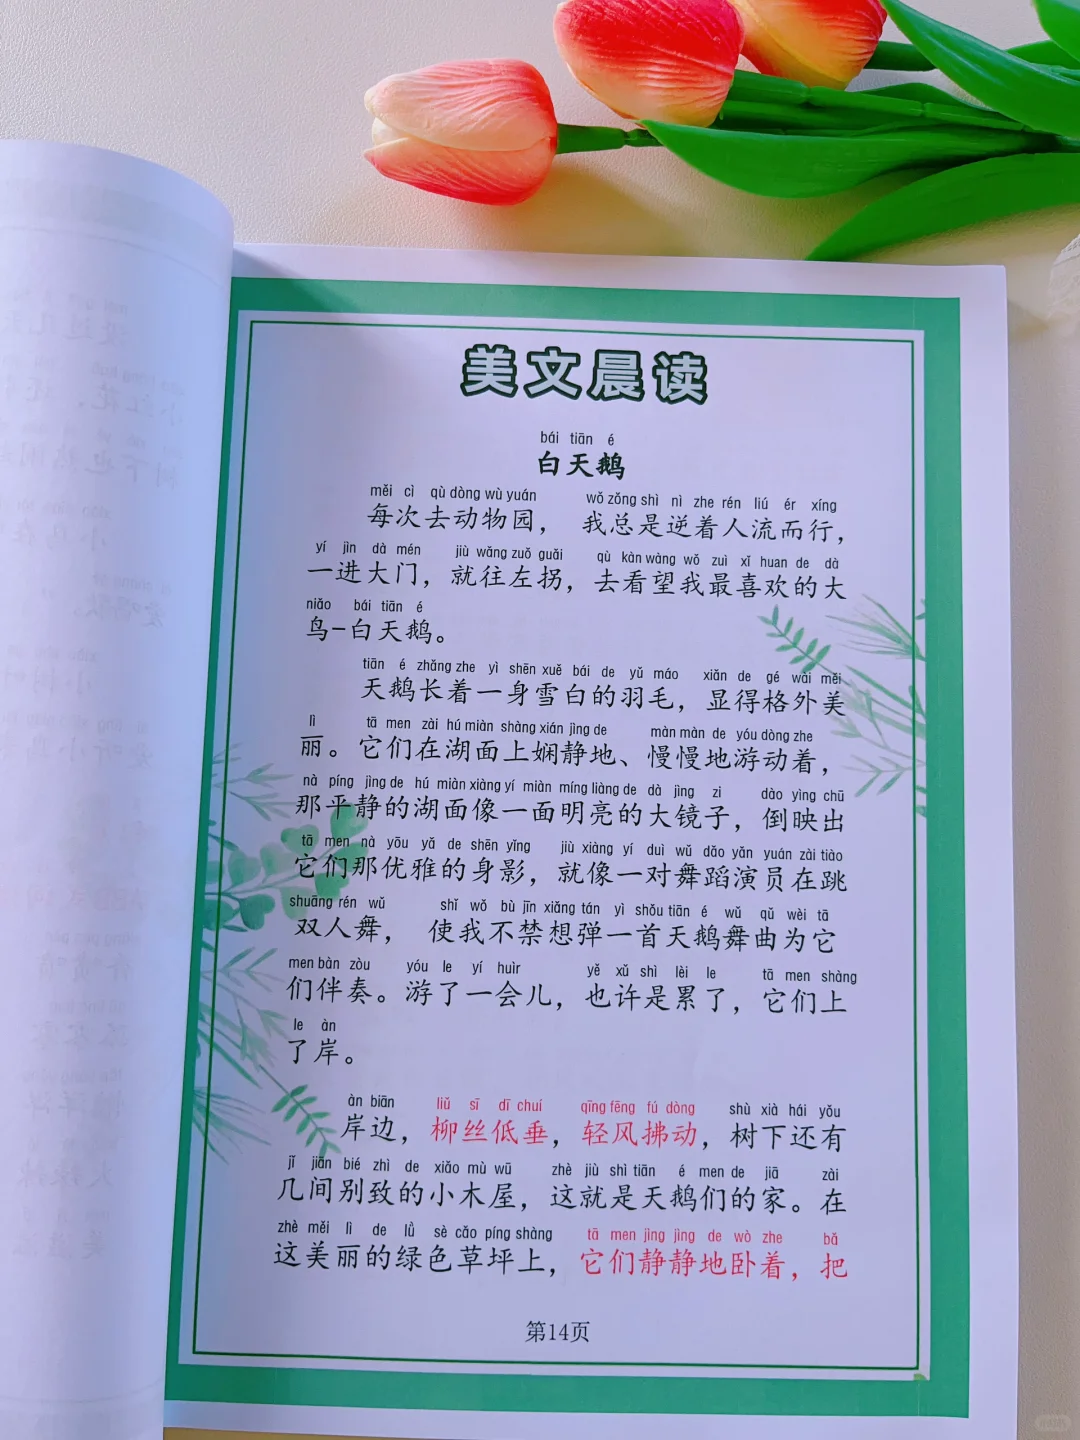 美文晨读
bái tiān é
白天鹅
měi cì qù dòng wù yuán wǒ zǒng shì nì zhe rén liú ér xíng
每次去动物园，我总是逆着人流而行，
yí jìn dà mén jiù wǎng zuǒ guǎi qù kàn wàng wǒ zuì xǐ huan de dà
一进大门，就往左拐，去看望我最喜欢的大
niǎo bái tiān é
鸟-白天鹅。
tiān é zhǎng zhe yì shēn xuě bái de yǔ máo xiǎn de gé wài měi
天鹅长着一身雪白的羽毛，显得格外美
lì tā men zài hú miàn shàng xián jìng de màn màn de yóu dòng zhe
丽。它们在湖面上娴静地、慢慢地游动着，
nà píng jìng de hú miàn xiàng yí miàn míng liàng de dà jìng zi dào yìng chū
那平静的湖面像一面明亮的大镜子，倒映出
tā men nà yōu yǎ de shēn yǐng jiù xiàng yí duì wǔ dǎo yǎn yuán zài tiào
它们那优雅的身影，就像一对舞蹈演员在跳
shuāng rén wǔ shǐ wǒ bù jīn xiǎng tán yì shǒu tiān é wǔ qǔ wèi tā
双人舞，使我不禁想弹一首天鹅舞曲为它
men bàn zòu yóu le yí huìr yě xǔ shì lèi le tā men shàng
们伴奏。游了一会儿，也许是累了，它们上
le àn
了岸。
àn biān liǔ sī dī chuí qīng fēng fú dòng shù xià hái yǒu
岸边，柳丝低垂，轻风拂动，树下还有
jǐ jiān bié zhì de xiǎo mù wū zhè jiù shì tiān é men de jiā zài
几间别致的小木屋，这就是天鹅们的家。在
zhè měi lì de lǜ sè cǎo píng shàng tā men jìng jìng de wò zhe bǎ
这美丽的绿色草坪上，它们静静地卧着，把
第14页